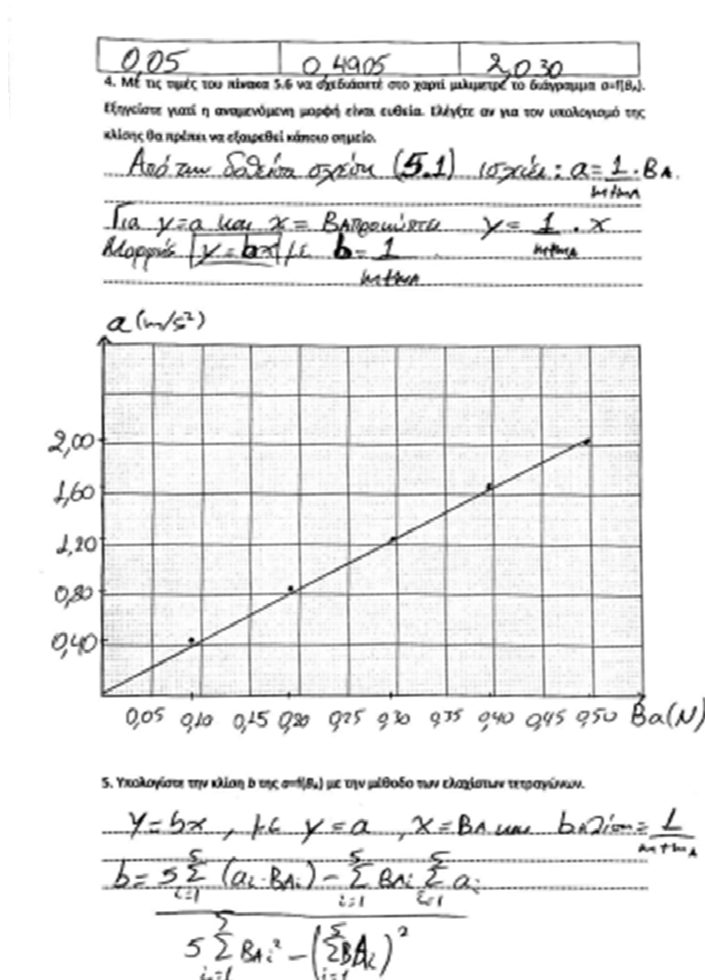 0,05 0,4905 2,030
4. Με τις τιμές του πίνακα 5.6 να σχεδιάσετε στο χαρτί μιλιμετρέ το διάγραμμα α=f(Bₐ).
Εξηγείστε γιατί η αναμενόμενη μορφή είναι ευθεία. Ελέγξτε αν για τον υπολογισμό της
κλίσης θα πρέπει να εξαιρεθεί κάποιο σημείο.
Από την δοθείσα σχέση (5.1) ισχύει : a = 1/(m+mA) · BA
Για y=a και x = BA προκύπτει y = 1/(m+mA) · x
Μορφής y = bx με b = 1/(m+mA)
a (m/s²)
2,00
1,60
1,20
0,80
0,40
0,05 0,10 0,15 0,20 0,25 0,30 0,35 0,40 0,45 0,50 Ba(N)
5. Υπολογίστε την κλίση b της α=f(Bₐ) με την μέθοδο των ελαχίστων τετραγώνων.
y=bx , με y = a , x = BA και b κλίση = 1/(m+mA)
b = 5 Σ (ai·BAi) – Σ BAi Σ ai
5 Σ BAi² – (Σ BAi)²